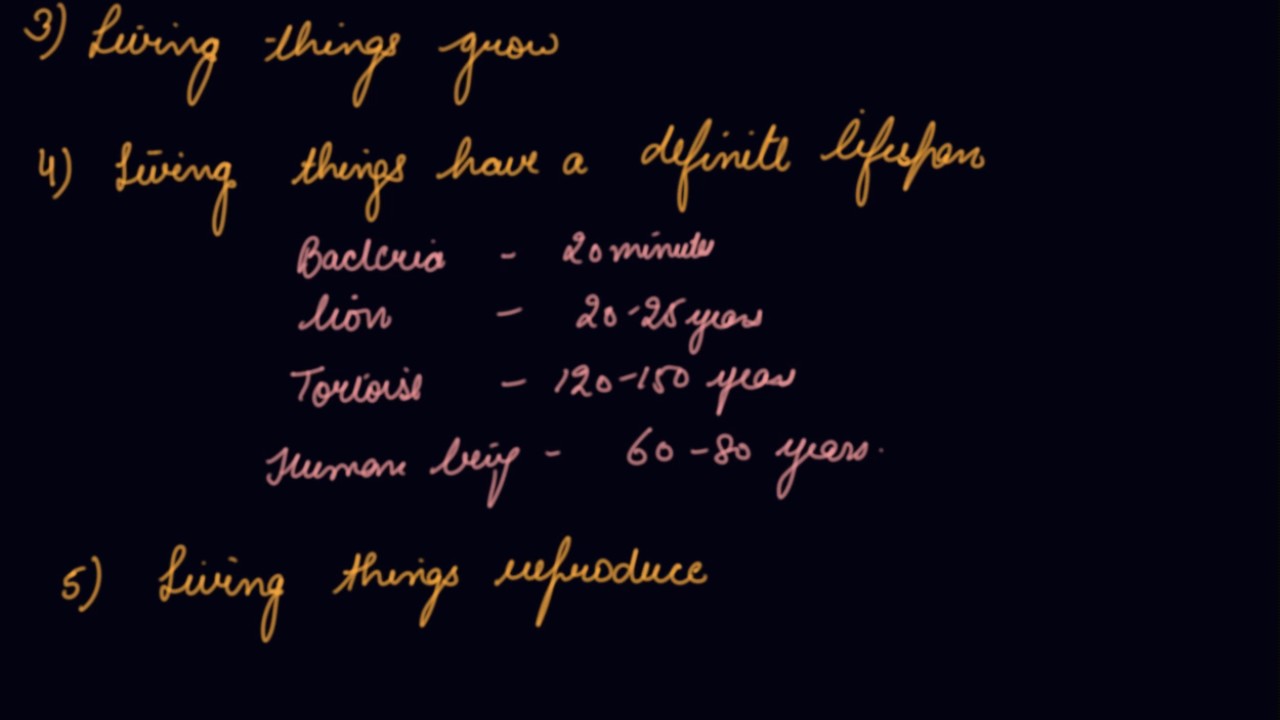 3) Living things grow
4) Living things have a definite lifespan
Bacteria - 20 minutes
lion - 20-25 years
Tortoise - 120-150 years
Human being - 60-80 years.
5) Living things reproduce